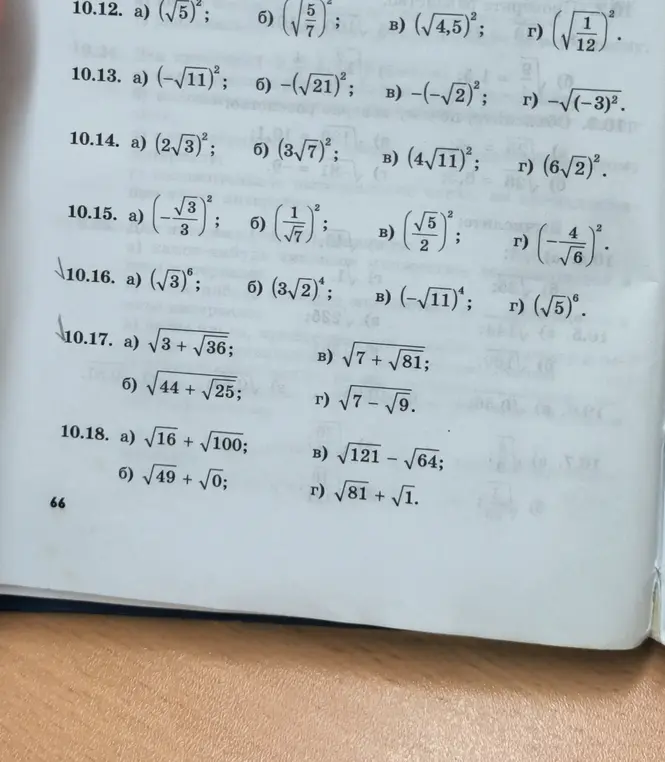 10.12. а) (√5)²; б) (√(5/7))²; в) (√4,5)²; г) (√(1/12))².
10.13. а) (−√11)²; б) −(√21)²; в) −(−√2)²; г) −√((−3)²).
10.14. а) (2√3)²; б) (3√7)²; в) (4√11)²; г) (6√2)².
10.15. а) (−√3/3)²; б) (1/√7)²; в) (√5/2)²; г) (−4/√6)².
10.16. а) (√3)⁶; б) (3√2)⁴; в) (−√11)⁴; г) (√5)⁶.
10.17. а) √(3 + √36); в) √(7 + √81);
б) √(44 + √25); г) √(7 − √9).
10.18. а) √16 + √100; в) √121 − √64;
б) √49 + √0; г) √81 + √1.
66